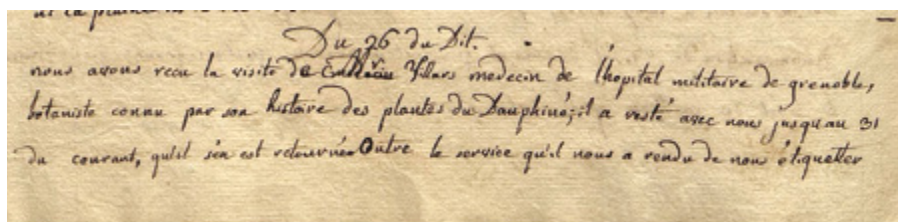 Du 26 du Dit.
nous avons recu la visite de Vilars medecin de l'hopital militaire de grenoble,
botaniste connu par son histoire des plantes du Dauphiné; il a resté avec nous jusqu'au 31
du courant, qu'il s'en est retourné Outre le service qu'il nous a rendu de nous étiquetter